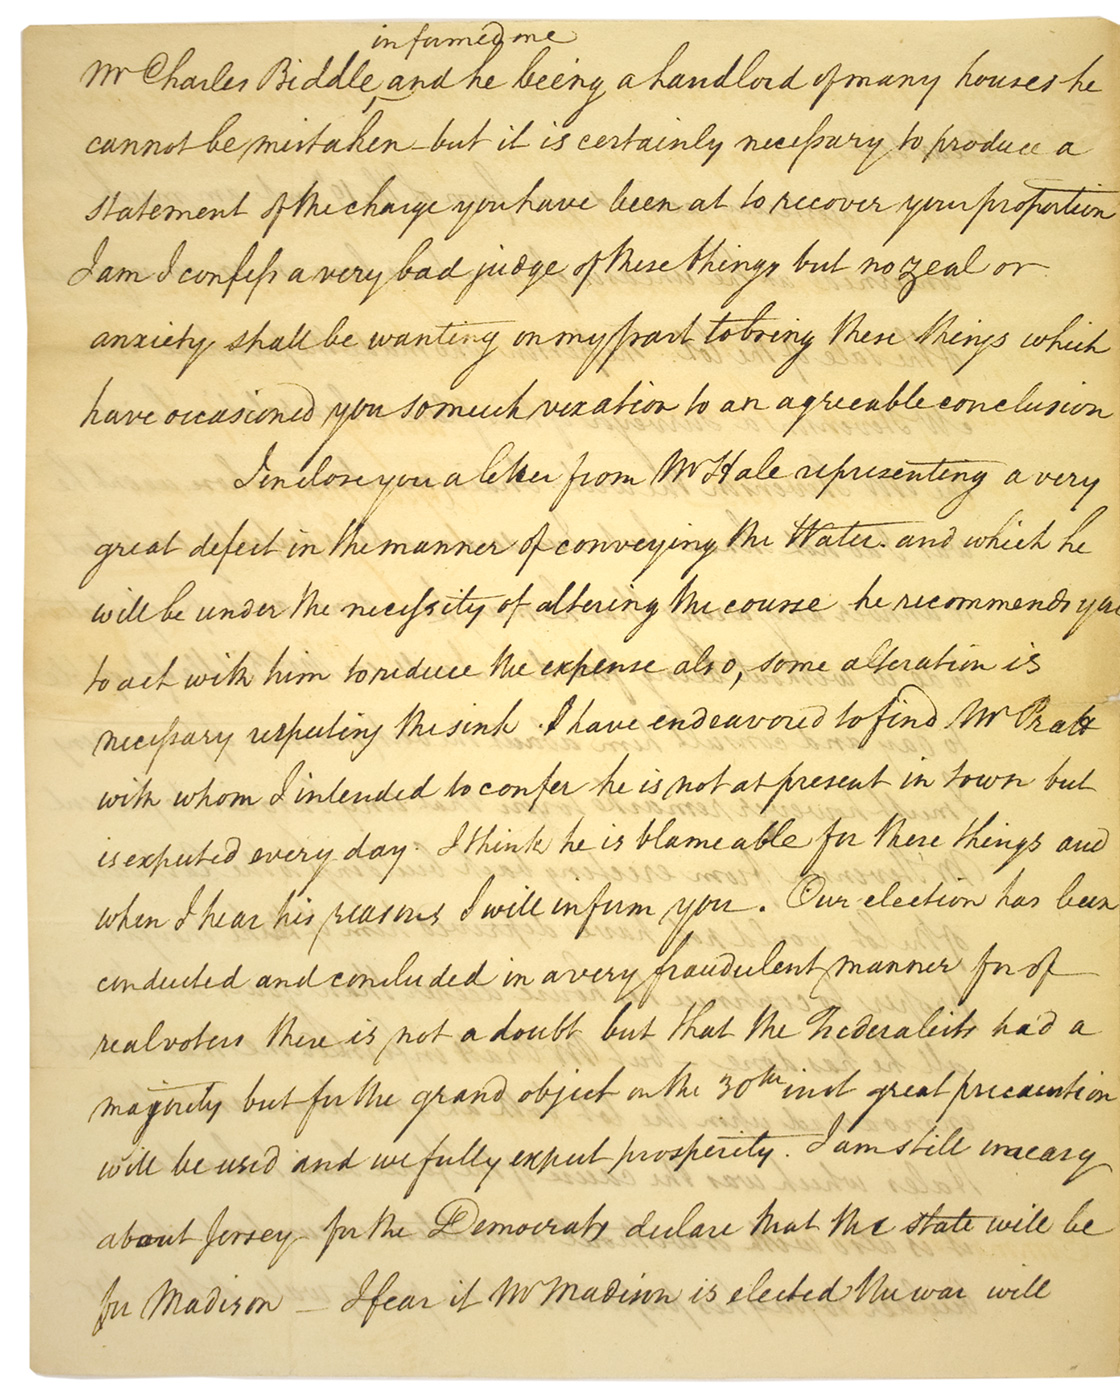 informed me
Mr Charles Biddle, and he being a landlord of many houses he
cannot be mistaken – but it is certainly necessary to produce a
statement of the charge you have been at to recover your proportion
I am I confess a very bad judge of these things but no zeal or
anxiety shall be wanting on my part to bring these things which
have occasioned you so much vexation to an agreeable conclusion
I enclose you a letter from Mr Hale representing a very
great defect in the manner of conveying the Water. and which he
will be under the necessity of altering the course he recommends you
to act with him to reduce the expense also, some alteration is
necessary respecting the sink. I have endeavored to find Mr Pratt
with whom I intended to confer he is not at present in town but
is expected every day. I think he is blameable for these things and
when I hear his reasons I will inform you. Our election has been
conducted and concluded in a very fraudulent manner for of
real voters there is not a doubt but that the Federalists had a
majority but for the grand object on the 30th inst great precaution
will be used and we fully expect prosperity. I am still uneasy
about Jersey for the Democrats declare that the state will be
for Madison – I fear if Mr Madison is elected the war will